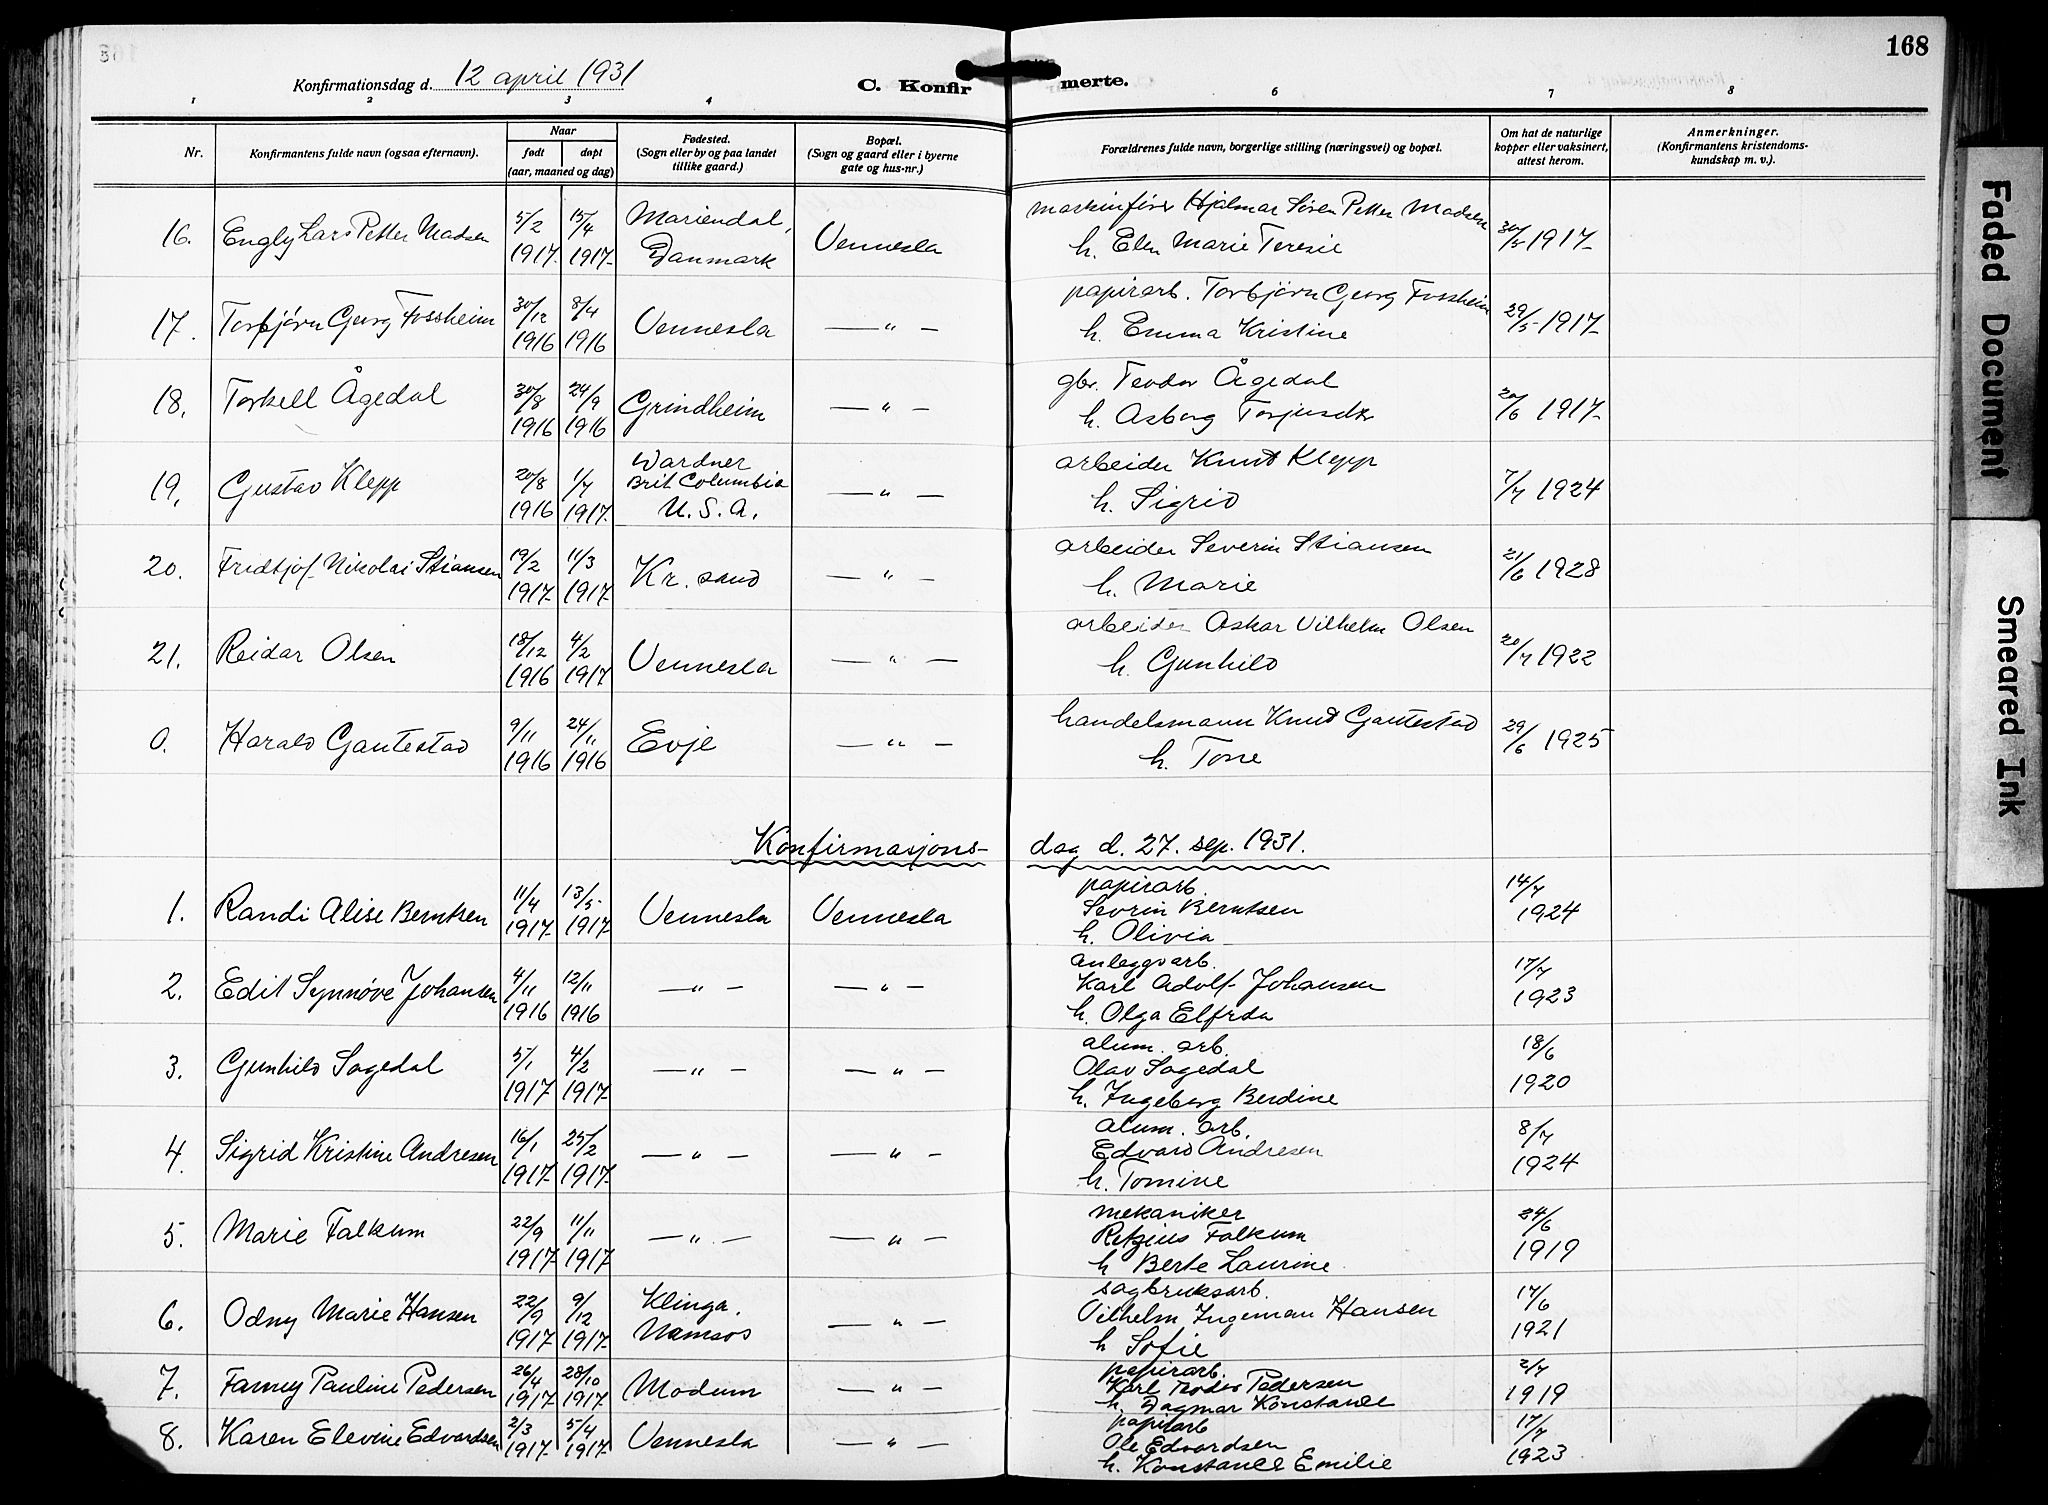 168
Konfirmationsdag d. 12 april 1931
C. Konfir merte.
1 2 3 4 6 7 8
Nr.
Konfirmantens fulde navn (ogsaa efternavn).
Naar
født døpt
(aar, maaned og dag)
Fødested.
(Sogn eller by og paa landet
tillike gaard.)
Bopæl.
(Sogn og gaard eller i byerne
gate og hus-nr.)
Forældrenes fulde navn, borgerlige stilling (næringsvei) og bopæl.
Om hat de naturlige
kopper eller vaksinert,
attest herom.
Anmerkninger.
(Konfirmantens kristendoms-
kundskap m. v.).
16. Engly Lars Petter Madsen 5/2 1917 15/4 1917 Mariendal, Danmark Vennesla
maskinfører Hjalmar Søren Petter Madsen
h. Elen Marie Teresie
30/5 1917
17. Torbjørn Georg Fossheim 30/12 1916 8/4 1916 Vennesla — " —
papirarb. Torbjørn Georg Fossheim
h. Emma Kristine
29/5 1917
18. Torkell Ågedal 30/8 1916 24/9 1916 Grindheim — " —
gbr. Teodor Ågedal
h. Asborg Torjusdtr
20/6 1917
19. Gustav Klepp 20/8 1916 1/7 1917 Wardner Brit Columbia U.S.A. — " —
arbeider Knut Klepp
h. Sigrid
7/7 1924
20. Fridtjof Nikolai Stiansen 19/2 1917 11/3 1917 Kr. sand — " —
arbeider Severin Stiansen
h. Marie
21/6 1928
21. Reidar Olsen 18/12 1916 4/2 1917 Vennesla — " —
arbeider Oskar Vilhelm Olsen
h. Gunhild
20/7 1922
0. Harald Gautestad 9/11 1916 24/11 1916 Evje — " —
handelsmann Knut Gautestad
h. Tone
29/6 1925
Konfirmasjons- dag d. 27. sep. 1931.
1. Randi Alise Berntsen 11/4 1917 13/5 1917 Vennesla Vennesla
papirarb.
Sevrin Berntsen
h. Olivia
14/7 1924
2. Edit Synnøve Johansen 4/11 1916 12/11 1916 — " — — " —
anleggsarb.
Karl Adolf Johansen
h. Olga Elfrda
17/7 1923
3. Gunhild Sagedal 5/1 1917 4/2 1917 — " — — " —
alum. arb.
Olav Sagedal
h. Ingeborg Berdine
18/6 1920
4. Sigrid Kristine Andresen 16/1 1917 25/2 1917 — " — — " —
alum. arb.
Edvard Andresen
h. Tomine
8/7 1924
5. Marie Falkum 22/9 1917 11/11 1917 — " — — " —
mekaniker
Retzius Falkum
h Berte Laurine
24/6 1919
6. Odny Marie Hansen 22/9 1917 9/12 1917 Klinga, Namsos — " —
sagbruksarb.
Vilhelm Ingeman Hansen
h Sofie
17/6 1921
7. Fanny Pauline Pedersen 26/4 1917 28/10 1917 Modum — " —
papirarb.
Karl Teodor Pedersen
h. Dagmar Konstanse
2/7 1919
8. Karen Elevine Edvardsen 2/3 1917 5/4 1917 Vennesla — " —
papirarb
Ole Edvardsen
h. Konstanse Emilie
17/7 1923
Faded Document
Smeared Ink